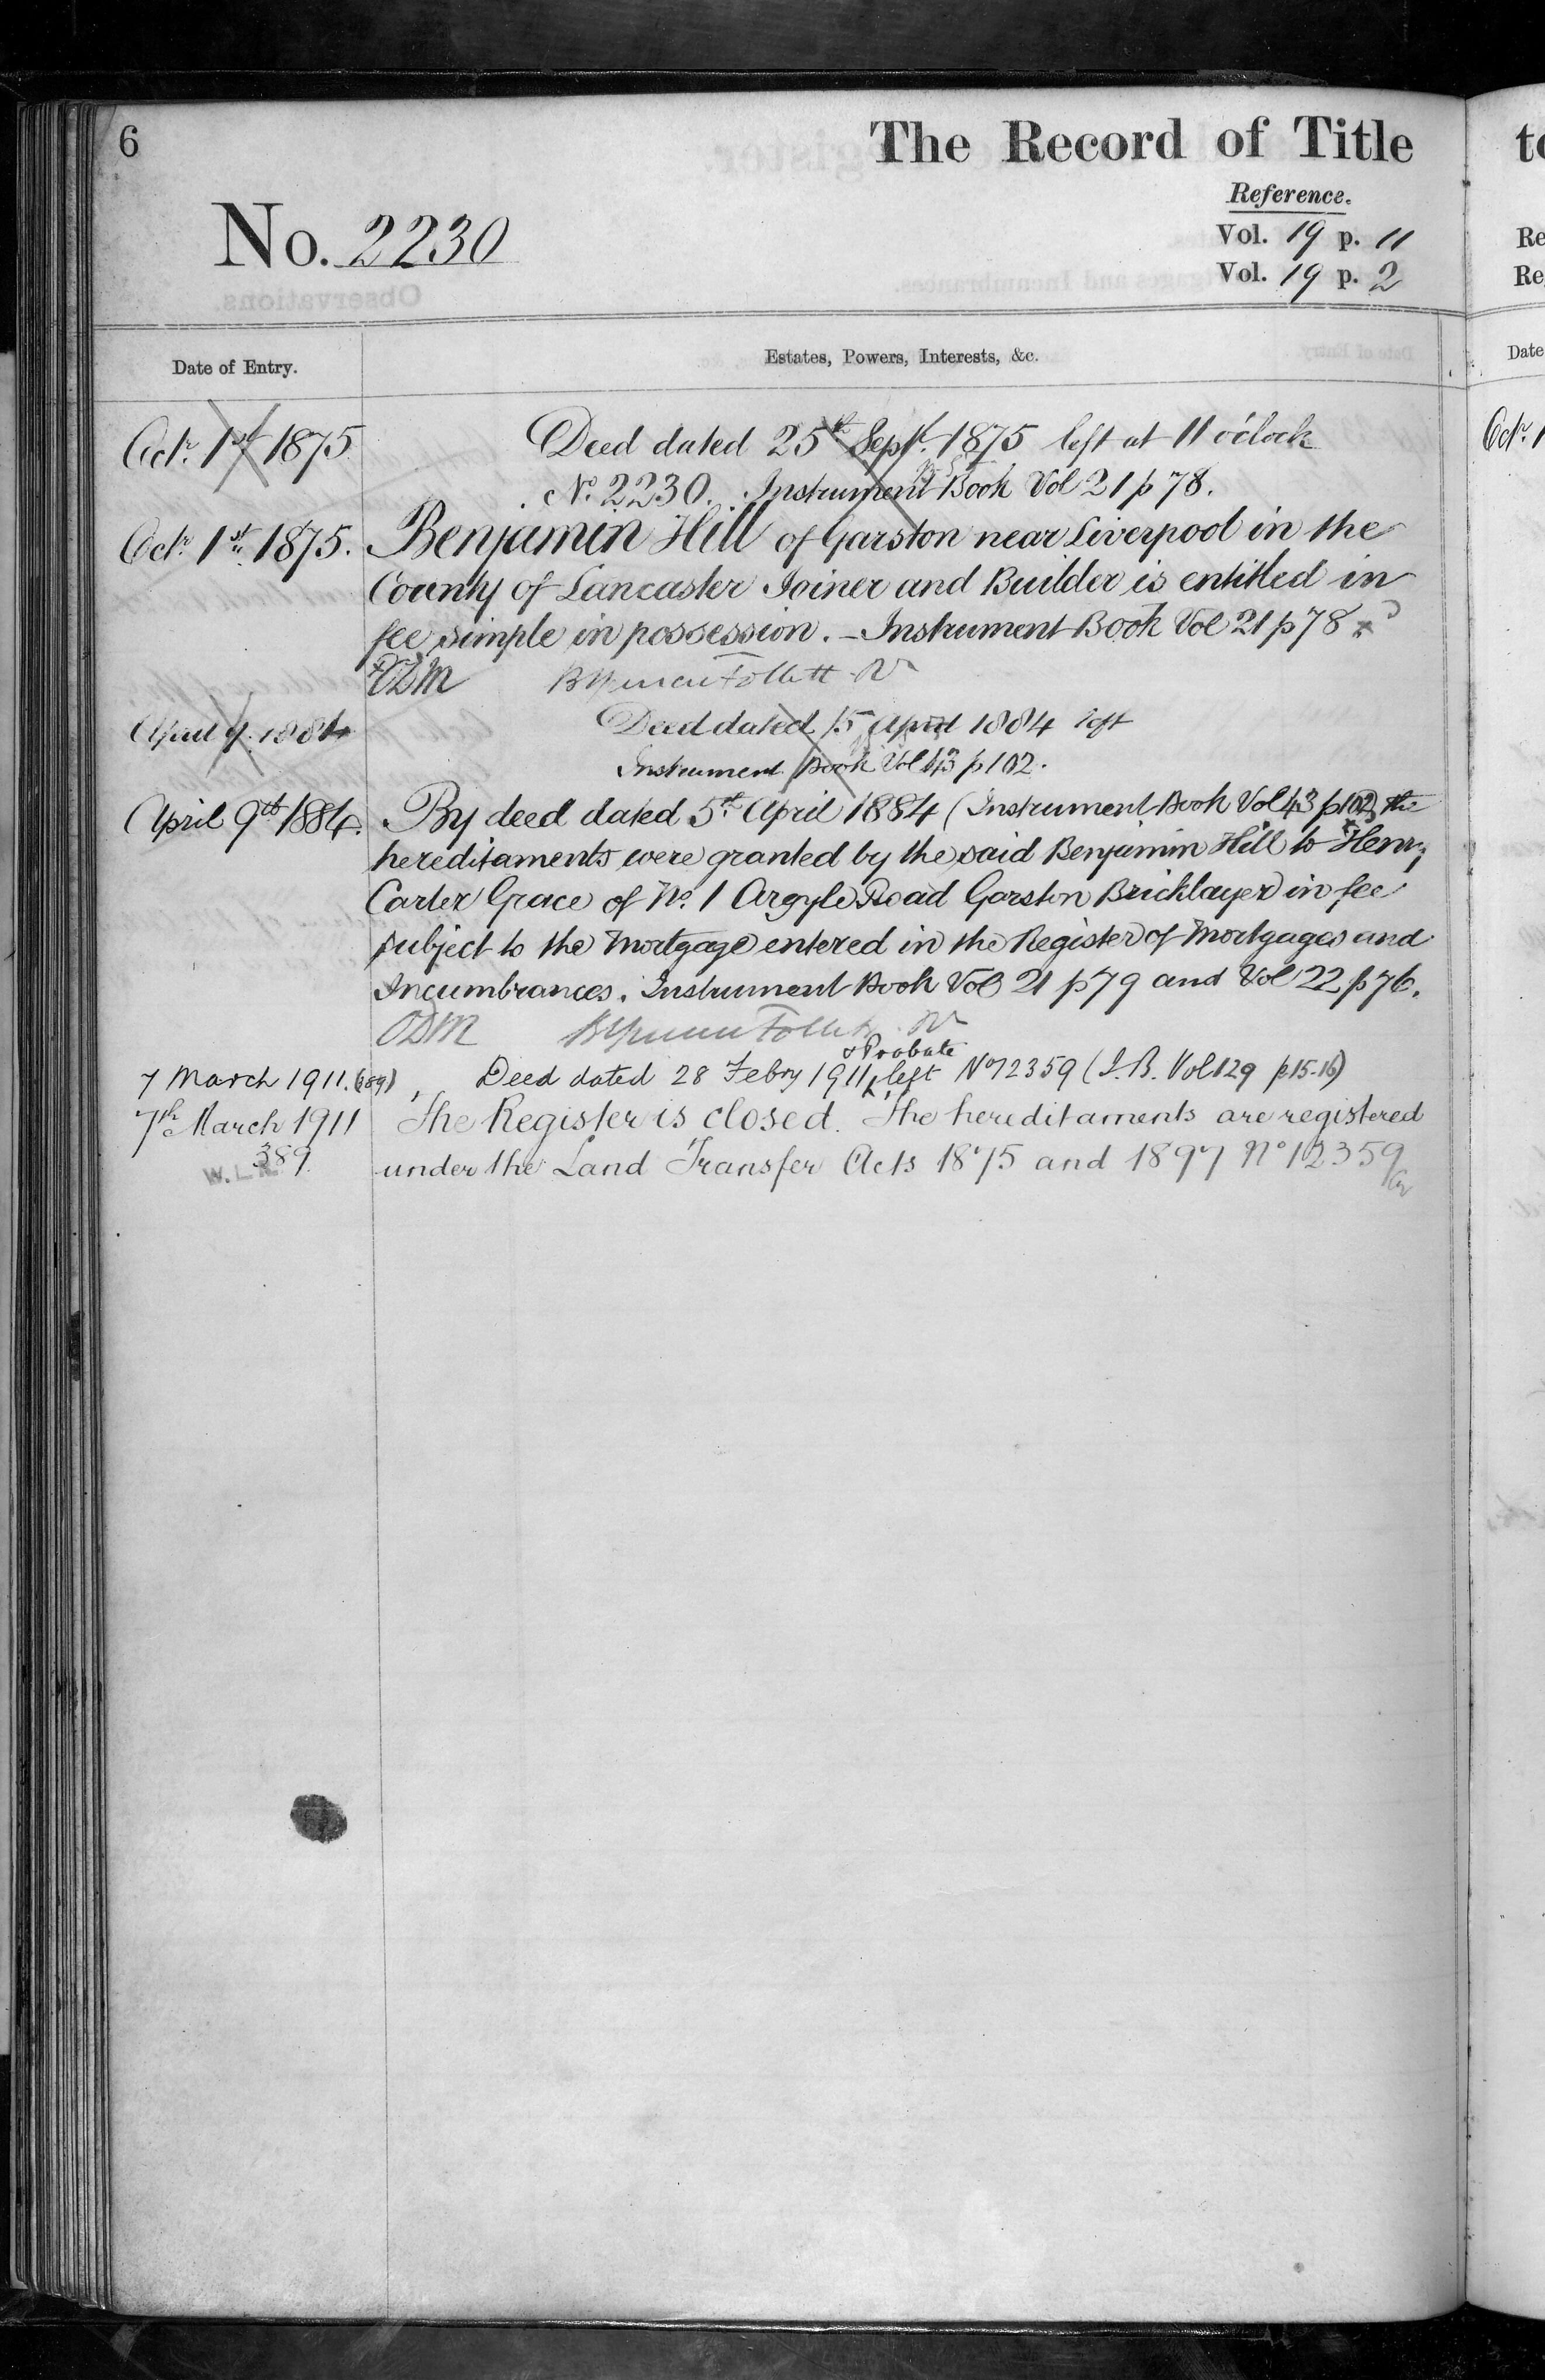 6
The Record of Title
Reference.
No. 2230
Vol. 19 p. 11
Vol. 19 p. 2
Date of Entry.
Estates, Powers, Interests, &c.
Octr. 1st 1875
Deed dated 25th Sept. 1875 left at 11 o'clock
No. 2230. Instrument Book Vol 21 p 78.
Octr. 1st 1875.
Benjamin Hill of Garston near Liverpool in the
County of Lancaster Joiner and Builder is entitled in
fee simple in possession. – Instrument Book Vol 21 p 78
Follett
April 9. 1884
Deed dated 5 April 1884 left
Instrument Book Vol 43 p 102.
April 9th 1884.
By deed dated 5th April 1884 (Instrument Book Vol 43 p 102) the
hereditaments were granted by the said Benjamin Hill to Henry
Carter Grace of No. 1 Argyle Road Garston Bricklayer in fee
subject to the Mortgage entered in the Register of Mortgages and
Incumbrances. Instrument Book Vol 21 p 79 and Vol 22 p 76.
Follett
& Probate
7 March 1911. (389)
Deed dated 28 Febry 1911 left No 12359 (I.B. Vol 129 p 15-16)
7th March 1911
The Register is closed. The hereditaments are registered
389.
under the Land Transfer Acts 1875 and 1897 No 12359
W.L.R.
Re
Re
Date
Octr. 1